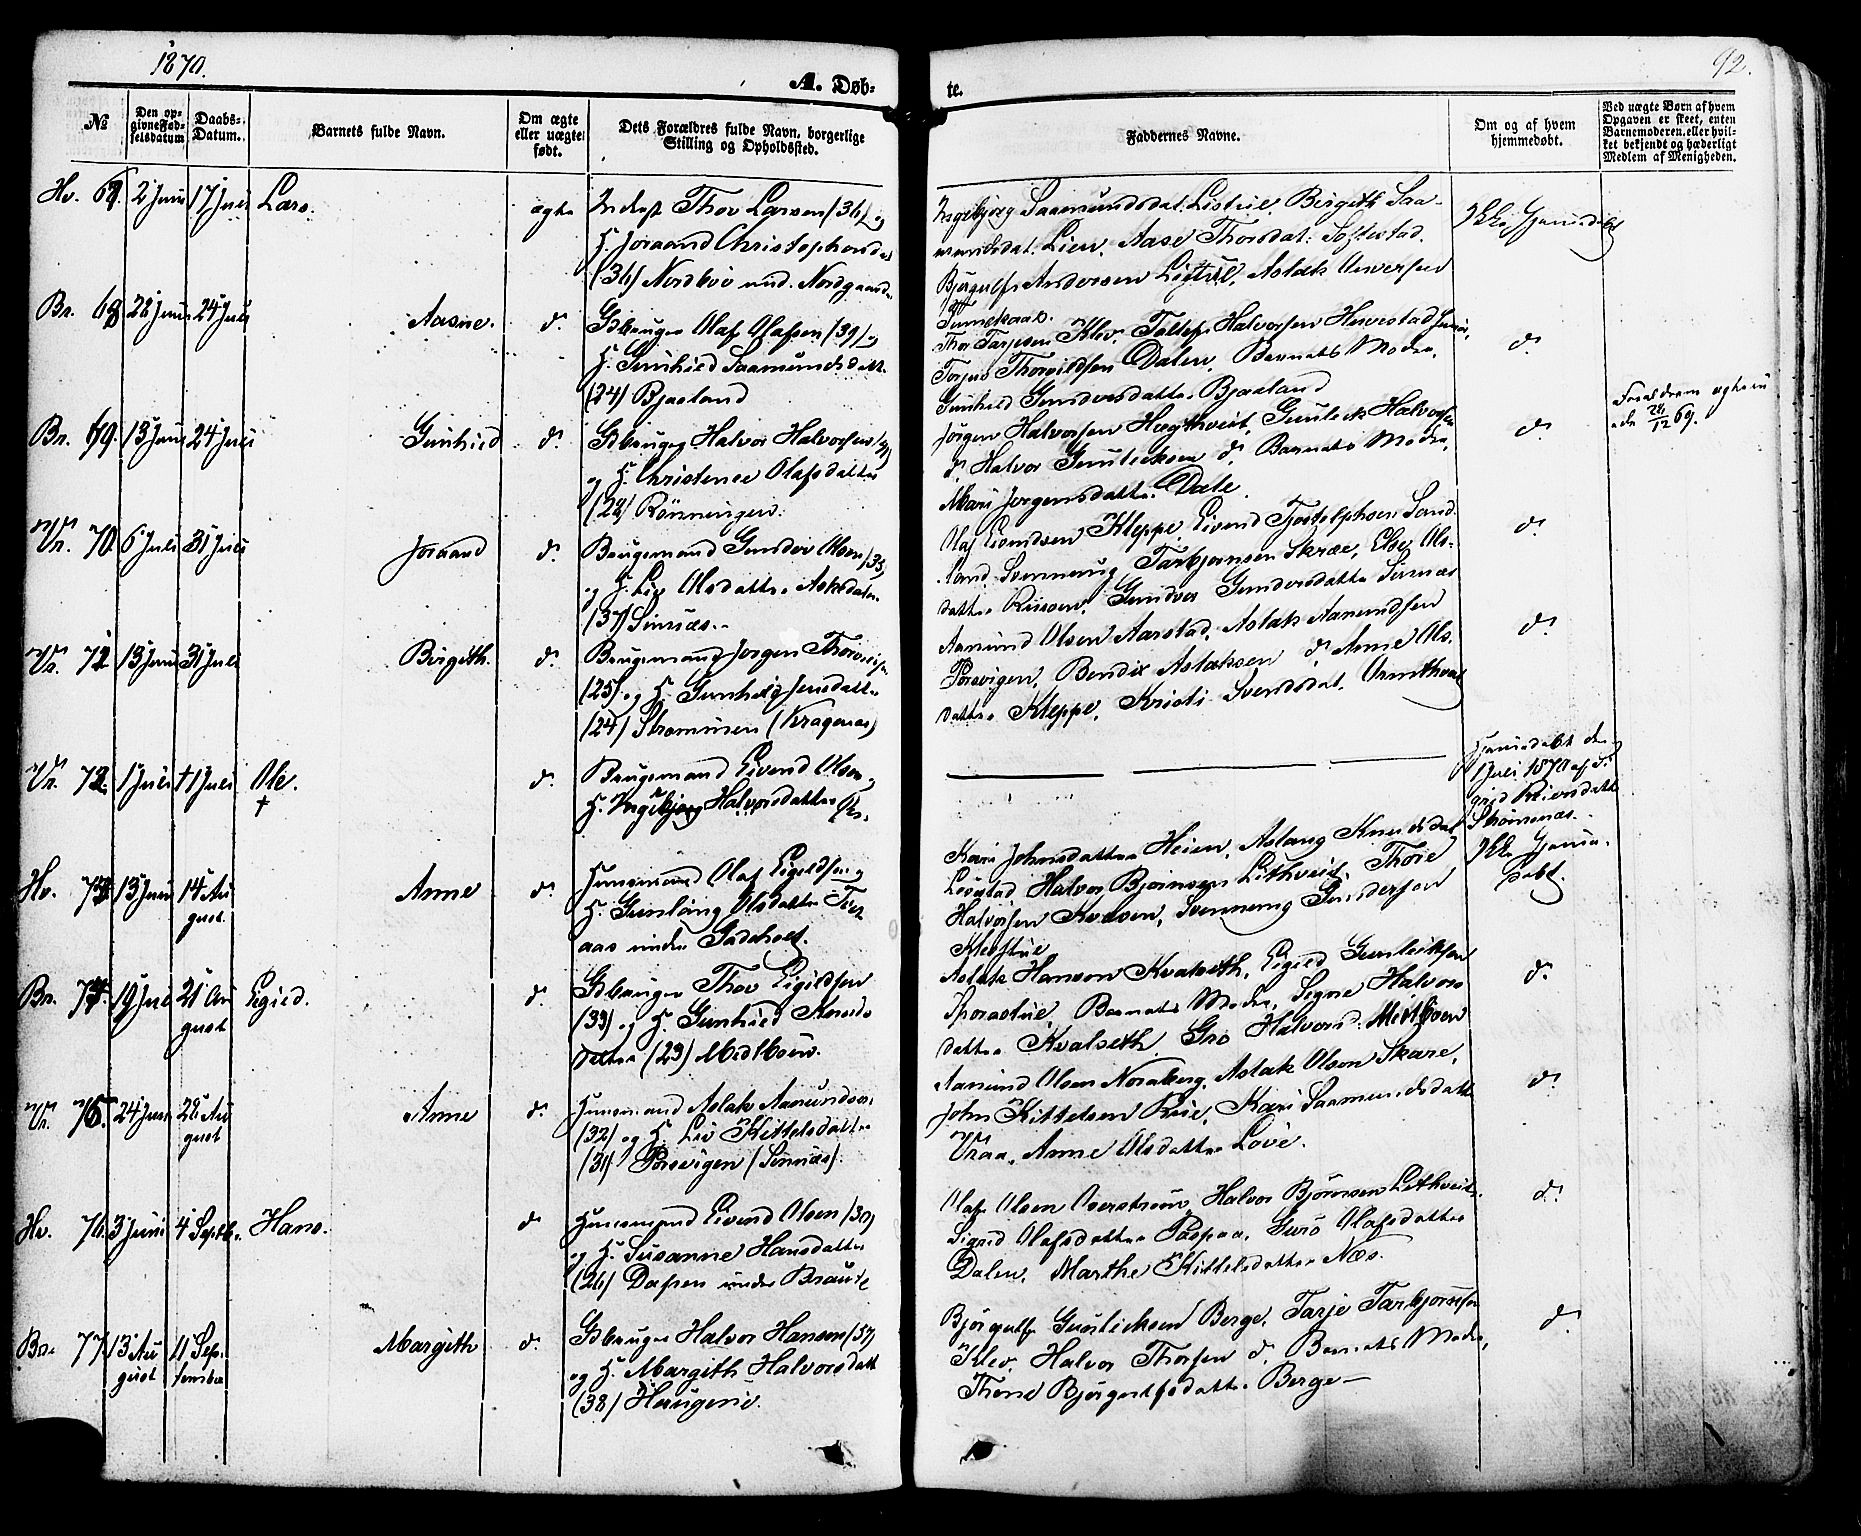 1870.
92.
A. Døb-
te.
№
Den op-
givne Fød-
selsdatum
Daabs-
Datum.
Barnets fulde Navn.
Om ægte
eller uægte
født.
Dets Forældres fulde Navn, borgerlige
Stilling og Opholdssted.
Faddernes Navne.
Om og af hvem
hjemmedøbt.
Ved uægte Børn af hvem
Opgaven er skeet, enten
Barnemoderen eller hvil-
ket bekjendt og hæderligt
Medlem af Menigheden.
Hv. 67. 2 Juni 17 Juli Lars. ægte
Inderst Thov Larsen (36) og
H. Joraand Christophersd
(36) Nordbøe und. Nordgaard
Ingebjørg Saamundsdat. Listul, Birgith Saa-
mundsdat. Lien, Aase Thorsdat: Softestad.
Bjørgulf Andersen Listul, Aslak Anversen
Ikke Hjemmedøbt
Br. 68 28 Juni 24 Juli Aasne. do
Gbruger Olaf Olafsen (39) og
H. Gunhild Saamundsdatt.
(24) Bjaaland
Thor Tarjesen Klev, Tollef Halvorsen Hevestad
Torjus Thorvildsen Dalen, Barnets Moder,
Gunhild Gundersdatter Bjaaland
do
Br. 69. 13 Juni 24 Juli Gunhild do
Gbruger Halvor Halvorsen
og H. Christense Olafsdatter
(28) Rønningen.
Jørgen Halvorsen Hægthveit, Gunleik Halvorsen
do Halvor Gunleiksen do, Barnets Moder,
Mari Jørgensdatter Dale.
do
Forældrene ægtevi
ede 28/12 69.
Vr. 70 6 Juli 31 Juli Joraand do
Brugsmand Gunder Olsen (35)
og H. Liv Olsdatter Askedalen
(37) Sinnæs.
Olaf Eivindsen Kleppe, Eivind Tjostolphsen Sand-
land, Svennung Tarbjørnsen Skræe, Else Ols-
datter Riisen, Gundvor Gundersdatter Sinnæs
do
Vr. 71 13 Juni 31 Juli Birgith. do
Brugsmand Jørgen Thorvi
(25) og H. Gunhild Jensdatter
(24) Strømmen (Kragenæs)
Aamund Olsen Aarstad, Aslak Aamundsen
Porsvigen, Bendix Aslaksen do, Anne Ols-
datter Kleppe, Kristi Svendsdat.
do
Vr. 72. 1 Juli † 1 Juli Ole. † do
Brugsmand Eivind Olsen og
H. Ingebjørg Halvorsdatter
Hjemmedøbt den
1 Juli 1870 af Si-
grid Reiersdatt
Strømnæs.
Hv. 73 13 Juni 14 Au
gust. Anne do
Huusmand Olaf Eigildsen og
H. Gunlaug Olsdatter
aas under Gaasholt.
Kari Johnsdatter Heien, Aslaug Knudsdat
Løvstad Halvor Bjørnsen Lithveit, Thore
Halvorsen Kvasen, Svennung Gundersen
Ikke Hjemme-
døbt.
Br. 74. 19 Juli 21 Au
gust Eigild. do
Gbruger Thov Eigildsen
(33) og H. Gunhild Knuds
datter (29) Midtbøen.
Aslak Hansen Kvalseth, Eigild Gunleiksen
Sporastue, Barnets Moder, Signe Halvors
datter Kvalseth, Gro Halvorsd. Midtbøen
do
Vr. 75. 24 Juni 28 Au
gust Anne do
Huusmand Aslak Aamundsen
(32) og H. Liv Kittelsdatter
(31) Porsvigen (Sinnæs).
Aamund Olsen Noraberg, Aslak Olsen Skare,
John Kittelsen Riie, Kari Saamundsdatt
Vraa, Anne Olsdatter Love.
do
Hv. 76. 3 Juni 4 Septb. Hans. do
Huusmand Eivind Olsen (30)
og H. Susanne Hansdatter
(26) under
Olaf Olsen Overstrøm, Halvor Bjørnsen Lithveit.
Sigrid Olafsdatter Paspaa, Guro Olafsdatter
Dalen, Marthe Kittelsdatter Næs.
do
Br. 77. 13 Au
gust 11 Sep-
tember Margith do.
Gbruger Halvor Hansen (37)
og H. Margith Halvorsdatt
(38) Haugene.
Bjørgulf Gunleiksen Berge, Tarje Tarbjørnsen
Klev, Halvor Thorsen do, Barnets Moder,
Thone Bjørgulfsdatter Berge—
do